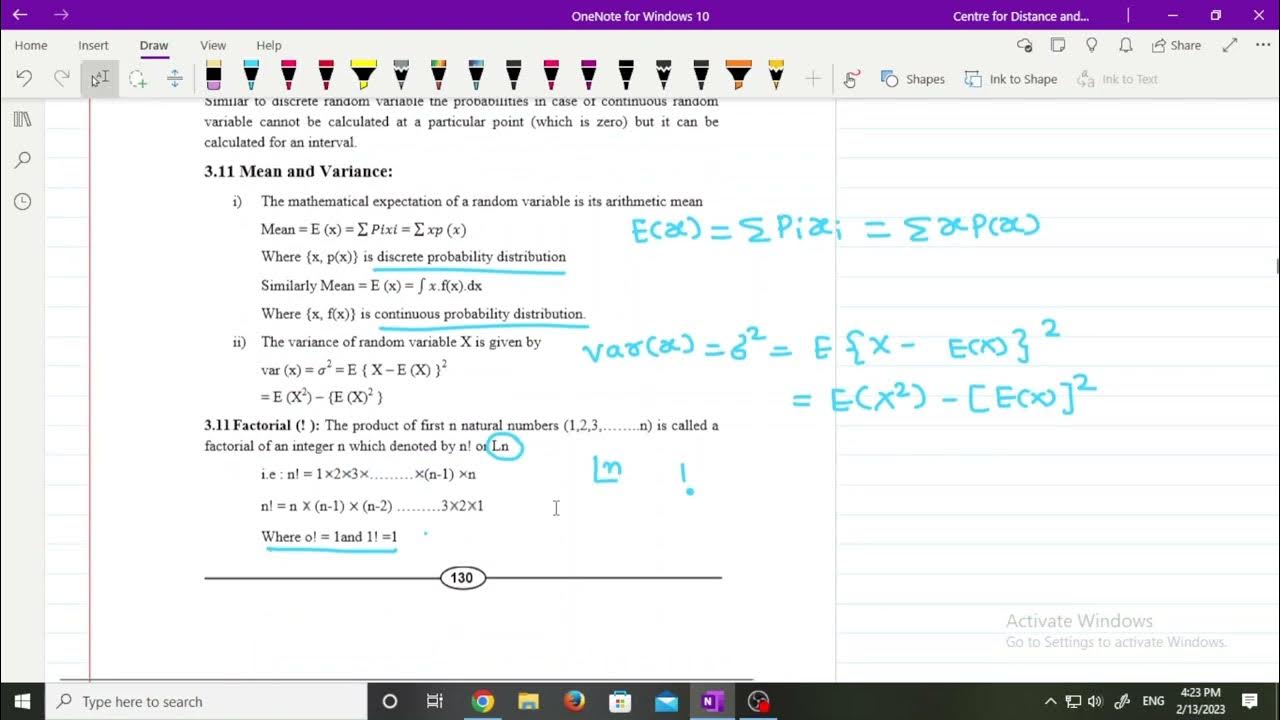 OneNote for Windows 10
Centre for Distance and...
Home Insert Draw View Help
Share
Shapes Ink to Shape Ink to Text
Similar to discrete random variable the probabilities in case of continuous random
variable cannot be calculated at a particular point (which is zero) but it can be
calculated for an interval.
3.11 Mean and Variance:
i) The mathematical expectation of a random variable is its arithmetic mean
Mean = E (x) = ∑ Pixi = ∑ xp (x)
E(x) = ∑ Pixi = ∑ xP(x)
Where {x, p(x)} is discrete probability distribution
Similarly Mean = E (x) = ∫ x.f(x).dx
Where {x, f(x)} is continuous probability distribution.
ii) The variance of random variable X is given by
var(x) = σ² = E {X - E(X)}²
var (x) = σ² = E { X – E (X) }²
= E (X²) – {E (X)² }
= E(X²) - [E(X)]²
3.11 Factorial (! ): The product of first n natural numbers (1,2,3,........n) is called a
factorial of an integer n which denoted by n! or Ln
Ln !
i.e : n! = 1×2×3×.........×(n-1) ×n
n! = n X (n-1) × (n-2) .........3×2×1
Where o! = 1and 1! =1
130
Activate Windows
Go to Settings to activate Windows.
Type here to search
ENG
4:23 PM
2/13/2023